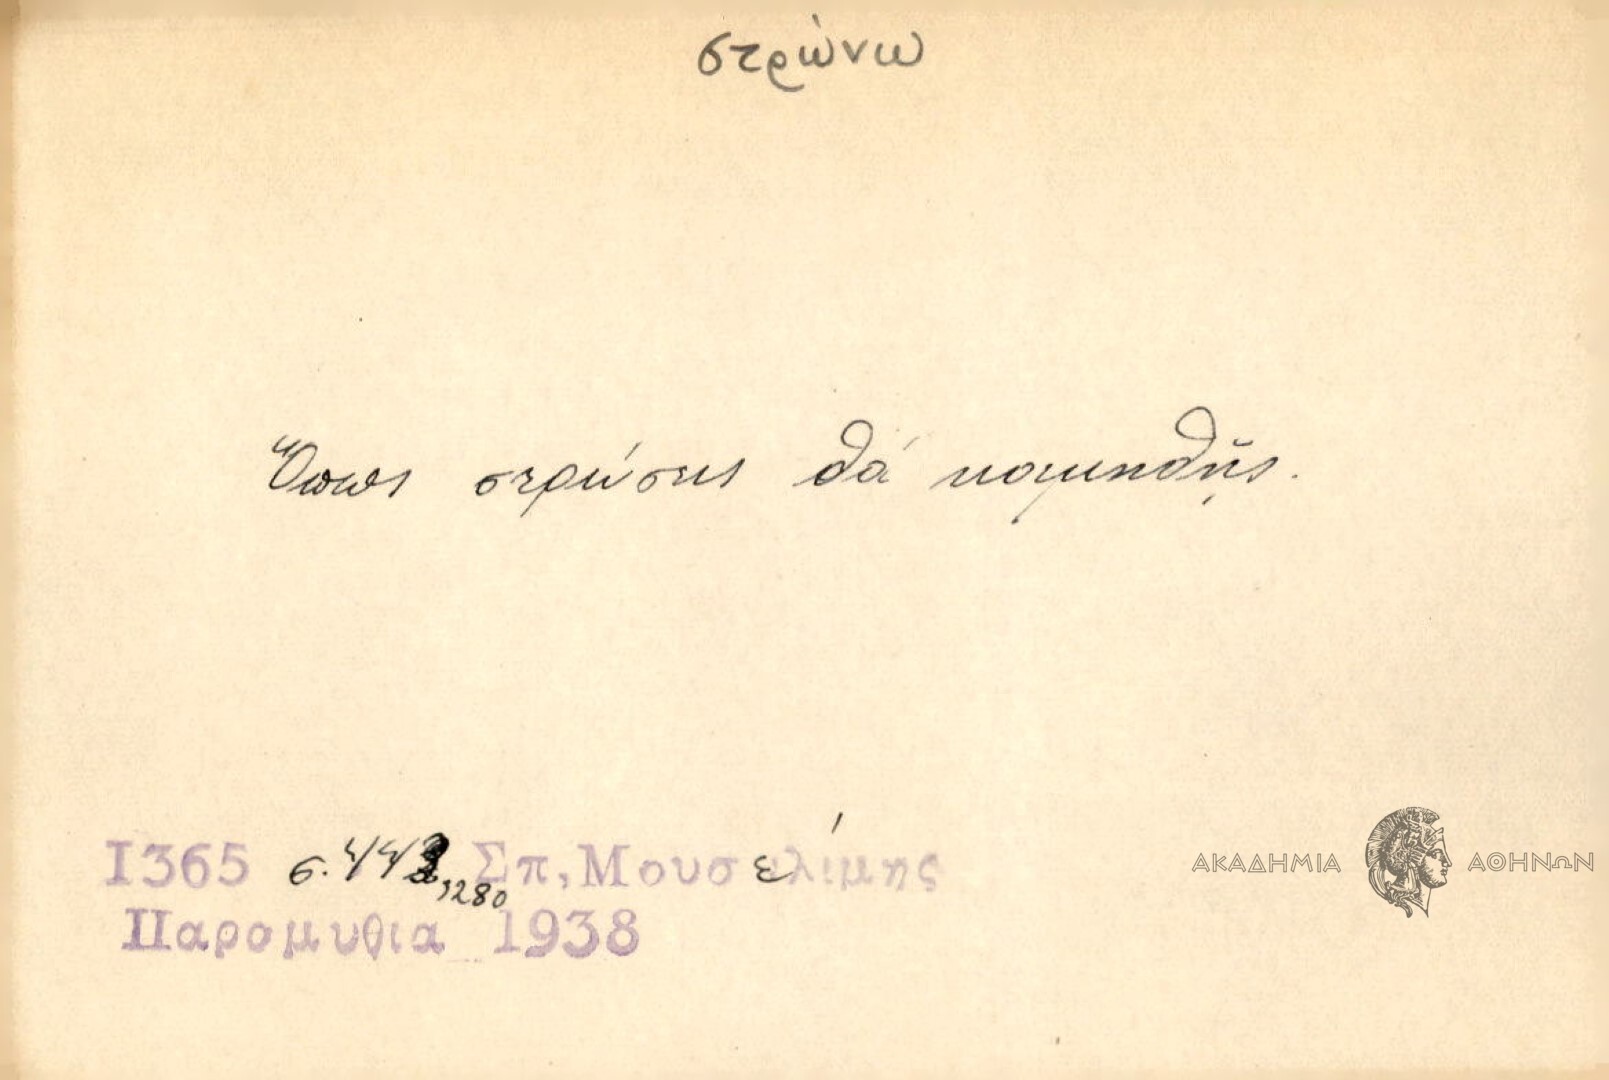 στρώνω
Ὅπως στρώσεις θά κοιμηθῇς.
1365 σ. 443,280 Σπ, Μουσελίμης
Παραμυθιά 1938
ΑΚΑΔΗΜΙΑ ΑΘΗΝΩΝ